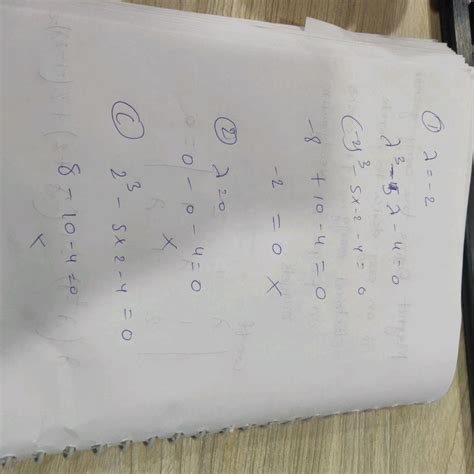 ① λ = -2
λ³ - 5λ - 4 = 0
(-2)³ - 5x-2 - 4 = 0
-8 + 10 - 4 = 0
-2 = 0 x
② λ = 0
0 - 0 - 4 = 0
x
Ⓒ 2³ - 5x2 - 4 = 0
8 - 10 - 4 = 0
x